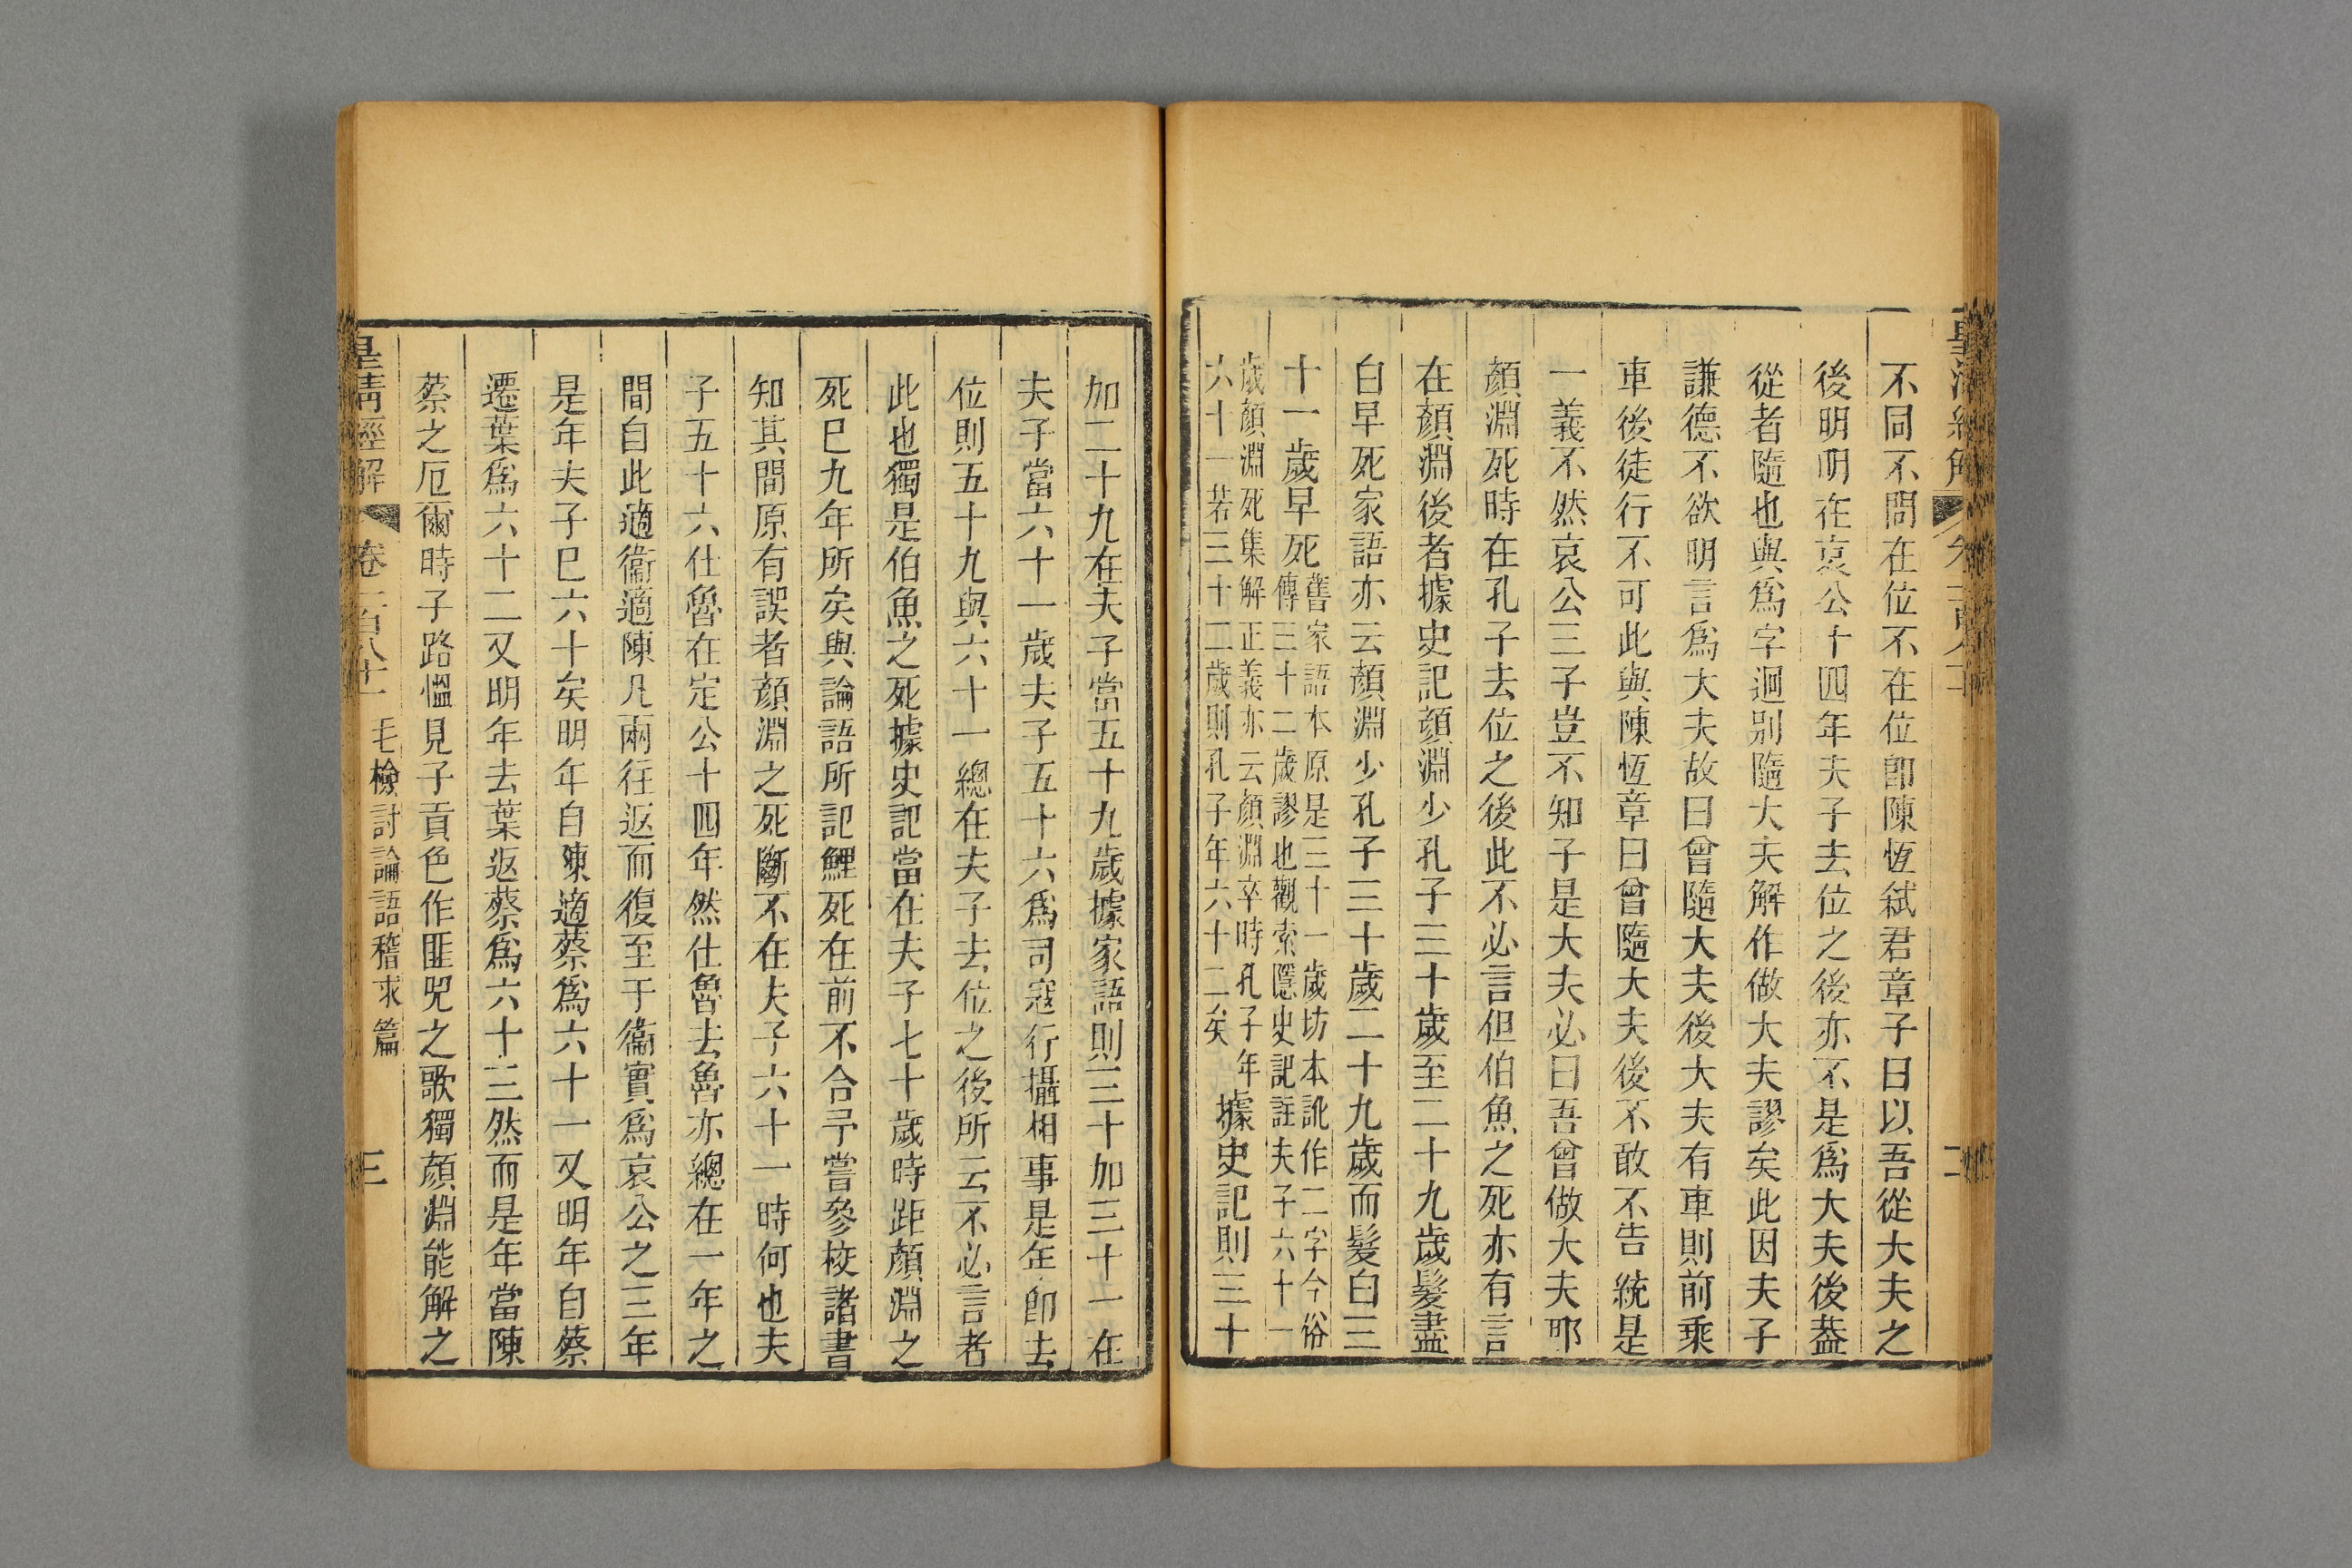 不同不問在位不在位卽陳恆弑君章子曰以吾從大夫之
後明明在哀公十四年夫子去位之後亦不是爲大夫後葢
從者隨也與爲字迥别隨大夫解作做大夫謬矣此因夫子
謙德不欲明言爲大夫故曰曾隨大夫後大夫有車則前乘
車後徒行不可此與陳恆章曰曾隨大夫後不敢不告統是
一義不然哀公三子豈不知子是大夫必曰吾曾做大夫耶
顏淵死時在孔子去位之後此不必言但伯魚之死亦有言
在顏淵後者據史記顏淵少孔子三十歲至二十九歲髮盡
白早死家語亦云顏淵少孔子三十歲二十九歲而髮白三
十一歲早死
舊家語本原是三十一歲坊本訛作二字今俗
傳三十二歲謬也觀索隱史記註夫子六十一
歲顏淵死集解正義亦云顏淵卒時孔子年
六十一若三十二歲則孔子年六十二矣
據史記則三十
加二十九在夫子當五十九歲據家語則三十加三十一在
夫子當六十一歲夫子五十六爲司寇行攝相事是年卽去
位則五十九與六十一總在夫子去位之後所云不必言者
此也獨是伯魚之死據史記當在夫子七十歲時距顏淵之
死巳九年所矣與論語所記鯉死在前不合予嘗參校諸書
知其間原有誤者顏淵之死斷不在夫子六十一時何也夫
子五十六仕魯在定公十四年然仕魯去魯亦總在一年之
間自此適衞適陳凡兩往返而復至于衞實爲哀公之三年
是年夫子巳六十矣明年自陳適蔡爲六十一又明年自蔡
遷葉爲六十二又明年去葉返蔡爲六十三然而是年當陳
蔡之厄爾時子路慍見子貢色作匪兕之歌獨顏淵能解之
皇清經解
毛檢討論語稽求篇
三